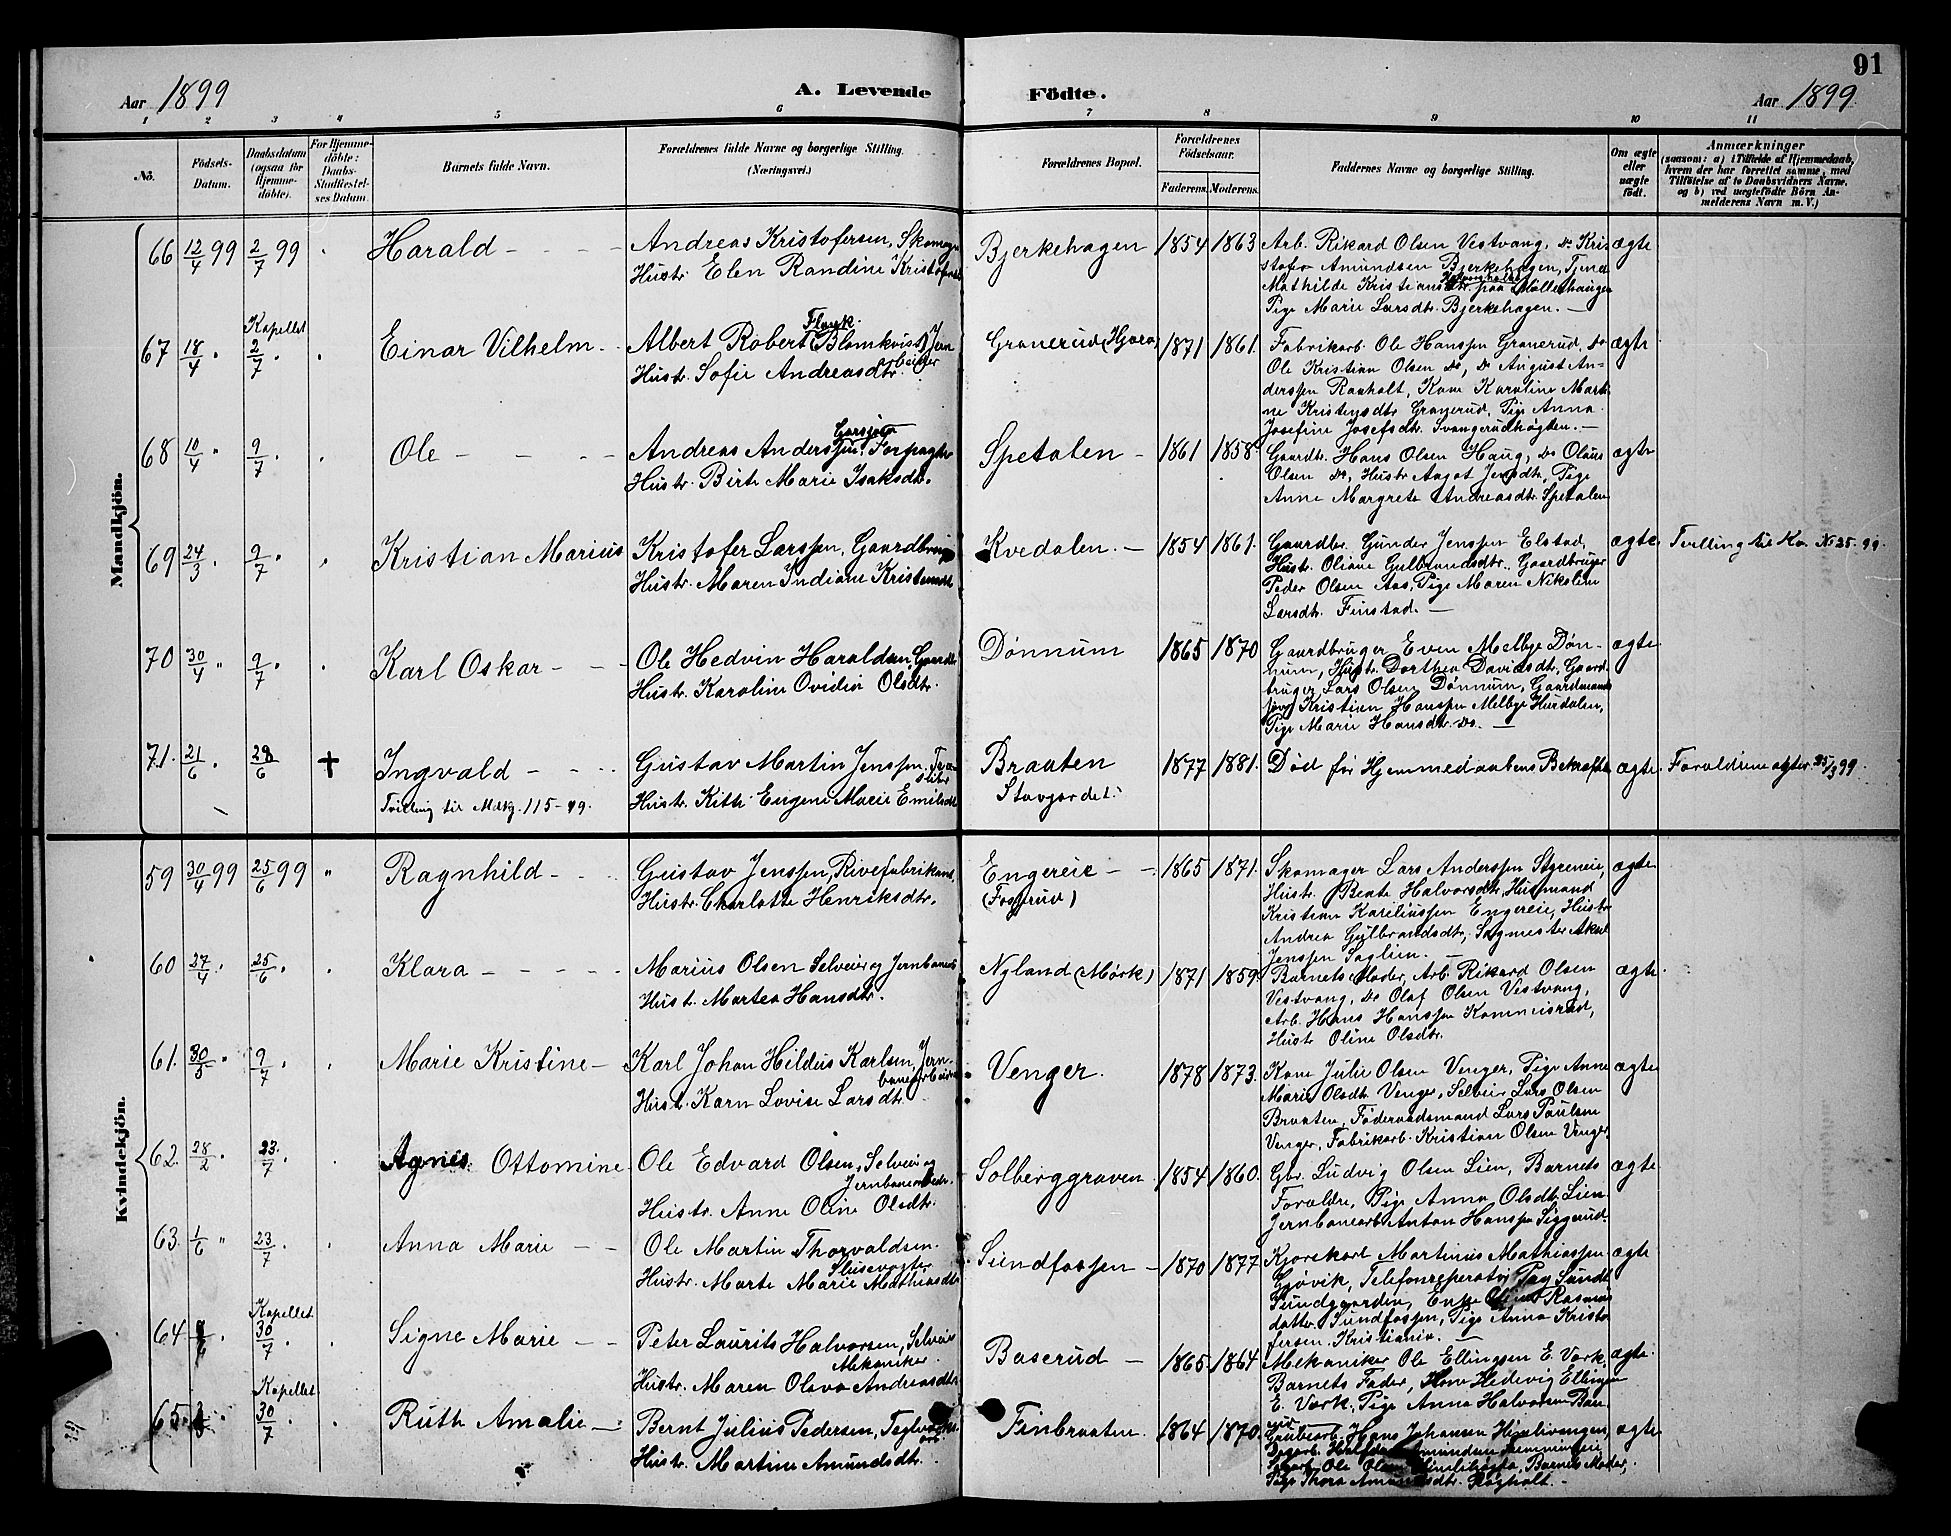 91
Aar 1899
A. Levende Födte.
Aar 1899
1 2 3 4 5 6 7 8 9 10 11
No.
Födsels-Datum.
Daabsdatum (ogsaa for Hjemme-döbte).
For Hjemme-döbte: Daabs-Stadfæstel-ses Datum.
Barnets fulde Navn.
Forældrenes fulde Navne og borgerlige Stilling. (Næringsvei.)
Forældrenes Bopæl.
Forældrenes Födselsaar.
Faderens. Moderens.
Faddernes Navne og borgerlige Stilling.
Om ægte eller uægte født.
Anmærkninger
(saasom: a) i Tilfælde af Hjemmedaab, hvem der har forrettet samme, med Tilföielse af to Daabsvidners Navne, og b) ved uægtefödte Börn Anmelderens Navn m. V.)
Mandkjön.
66 12/4 99 2/7 99 Harald
Andreas Kristofersen, Skomager
Hustr. Elen Randine Kristofersdtr
Bjerkehagen 1854 1863
Arb. Rikard Olsen Vestvang, Do Kri-
stofer Amundsen Bjerkehagen, Tjener
Mathilde Kristiansdtr. paa Møllerhaugen
Pige Marie Larsdtr. Bjerkehagen. —
ægte
67 18/4 Kapellet 2/7 Einar Vilhelm
Albert Robert (Flauk. Blomkvist) Jern
arbeider
Hustr. Sofie Andreasdtr.
Granerud (Hjera) 1871 1861
Fabrikarb. Ole Hanssen Granerud, Do
Ole Kristian Olsen Do, Do August An-
derssen Raaholt, Kone Karoline Marti-
ne Kristensdtr. Granerud, Pige Anna
Josefine Josefsdtr. Svangerudhøgten. —
ægte
68 10/4 9/7 Ole
Andreas Anderssen, Forpagter
Hustr. Birte Marie Isaksdtr.
Spetalen 1861 1858
Gaardbr. Hans Olsen Haug, Do Olaus
Olsen Do, Hustr. Aagot Jensdtr, Pige
Anne Margrete Andreasdtr. Spetalen
ægte
69 24/3 9/7 Kristian Marius
Kristofer Larssen, Gaardbruger
Hustr. Maren Indiane Kristensdtr
Kvedalen. 1854 1861
Gaardbr. Gunder Jenssen Elstad,
Hustr. Oliane Gulbrandsdtr., Gaardbruger
Peder Olsen Aas, Pige Maren Nikoline
Larsdtr. Finstad. —
ægte Tvilling til Kv. No 35 - 99.
70 30/4 9/7 Karl Oskar
Ole Hedvin Haraldsen, Gaardbr
Hustr. Karoline Ovidia Olsdtr.
Dønnum 1865 1870
Gaardbruger Even Melbye Døn-
num, Hustr. Dorthea Davidsdtr., Gaard-
bruger Lars Olsen Dønnum, Gaardmands
søn Kristian Hanssen Melbye Hurdalen,
Pige Marie Hansdtr. Do. —
ægte
71. 21/6 28/6 † Ingvald
Tvilling til Mdkj. 115-99.
Gustav Martin Jenssen,
Hustr. Kitti Eugene Marie Emilsdtr
Braaten
Stavgardet. 1877 1881.
Død før Hjemmedaabens Bekræftelse
ægte. Forældrene ægter. 25/3 99
Kvindekjön.
59 30/4 99 25/6 99 Ragnhild
Gustav Jenssen, Rivefabrikant,
Hustr. Charlotte Henriksdtr.
Engereie
(Fosserud) 1865 1871.
Skomager Lars Anderssen Styreneie,
Hustr. Beate Halvorsdtr, Husmand
Kristian Kareliussen Engereie, Hustr
Andrea Gulbrandsdtr, Sagmester Aksel
Jenssen Saglien. —
ægte
60 27/4 25/6 Klara
Marius Olsen Selveier og Jernbanearb
Hustr. Martea Hansdtr.
Nyland (Mørk) 1871 1859
Barnets Moder, Arb. Rikard Olsen
Vestvang, Do Olaf Olsen Vestvang,
Arb. Hans Hanssen Kommisrud,
Hustr Oline Olsdtr.
ægte.
61. 30/5 9/7 Marie Kristine
Karl Johan Hildus Karlsen, Jern-
banearbeider
Hustr. Karn Lovise Larsdtr.
Venger. 1878 1873.
Kone Julie Olsen Venger, Pige Anne
Marie Olsdtr. Venger, Selveier Lars Olsen
Braaten, Føderaadsmand Lars Paulsen
Venger, Fabrikarb. Kristian Olsen Venger
ægte
62. 28/2 23/7 Agnes Ottomine
Ole Edvard Olsen, Selveier og
Jernbanearbeider.
Hustr. Anne Oline Olsdtr.
Solberggraven 1854 1860.
Gbr. Ludvig Olsen Lien, Barnets
Forældre, Pige Anna Olsdtr. Lien
Jernbanearb. Anton Hanssen Siggerud.
ægte
63. 1/6 23/7 Anna Marie
Ole Martin Thorvaldsen.
Slusevogter
Hustr. Marte Marie Mathiasdtr
Sundfossen 1870 1877
Kjørekarl Martinus Mathiassen
Gjøvik, Telefonreperatør Pay Sundt
Sundgaarden, Enke Rasmus
datter Sundfossen, Pige Anna Kristo
fersen Kristiania. —
ægte
64 Kapellet 30/7 Signe Marie
Peter Laurits Halvorsen, Selveier
Mekaniker.
Hustr. Maren Olava Andreasdtr
Baserud 1865 1864
Mekaniker Ole Ellingsen E. Værk,
Barnets Fader, Kone Hedevig Ellingsen
E. Værk, Pige Anna Halvorsen Base-
rud
ægte.
65. Kapellet 30/7 Ruth Amalie
Bernt Julius Pedersen, Teglværks
arb.
Hustr. Martine Amundsdtr.
Finbraaten. 1864 1870
Grubearb. Hans Johansen Himlivangen,
Dagarb. Halfdan Amundsen
Ole Olsen Barnets Moder,
Pige Thora Amundsdtr. Røgholt. —
ægte